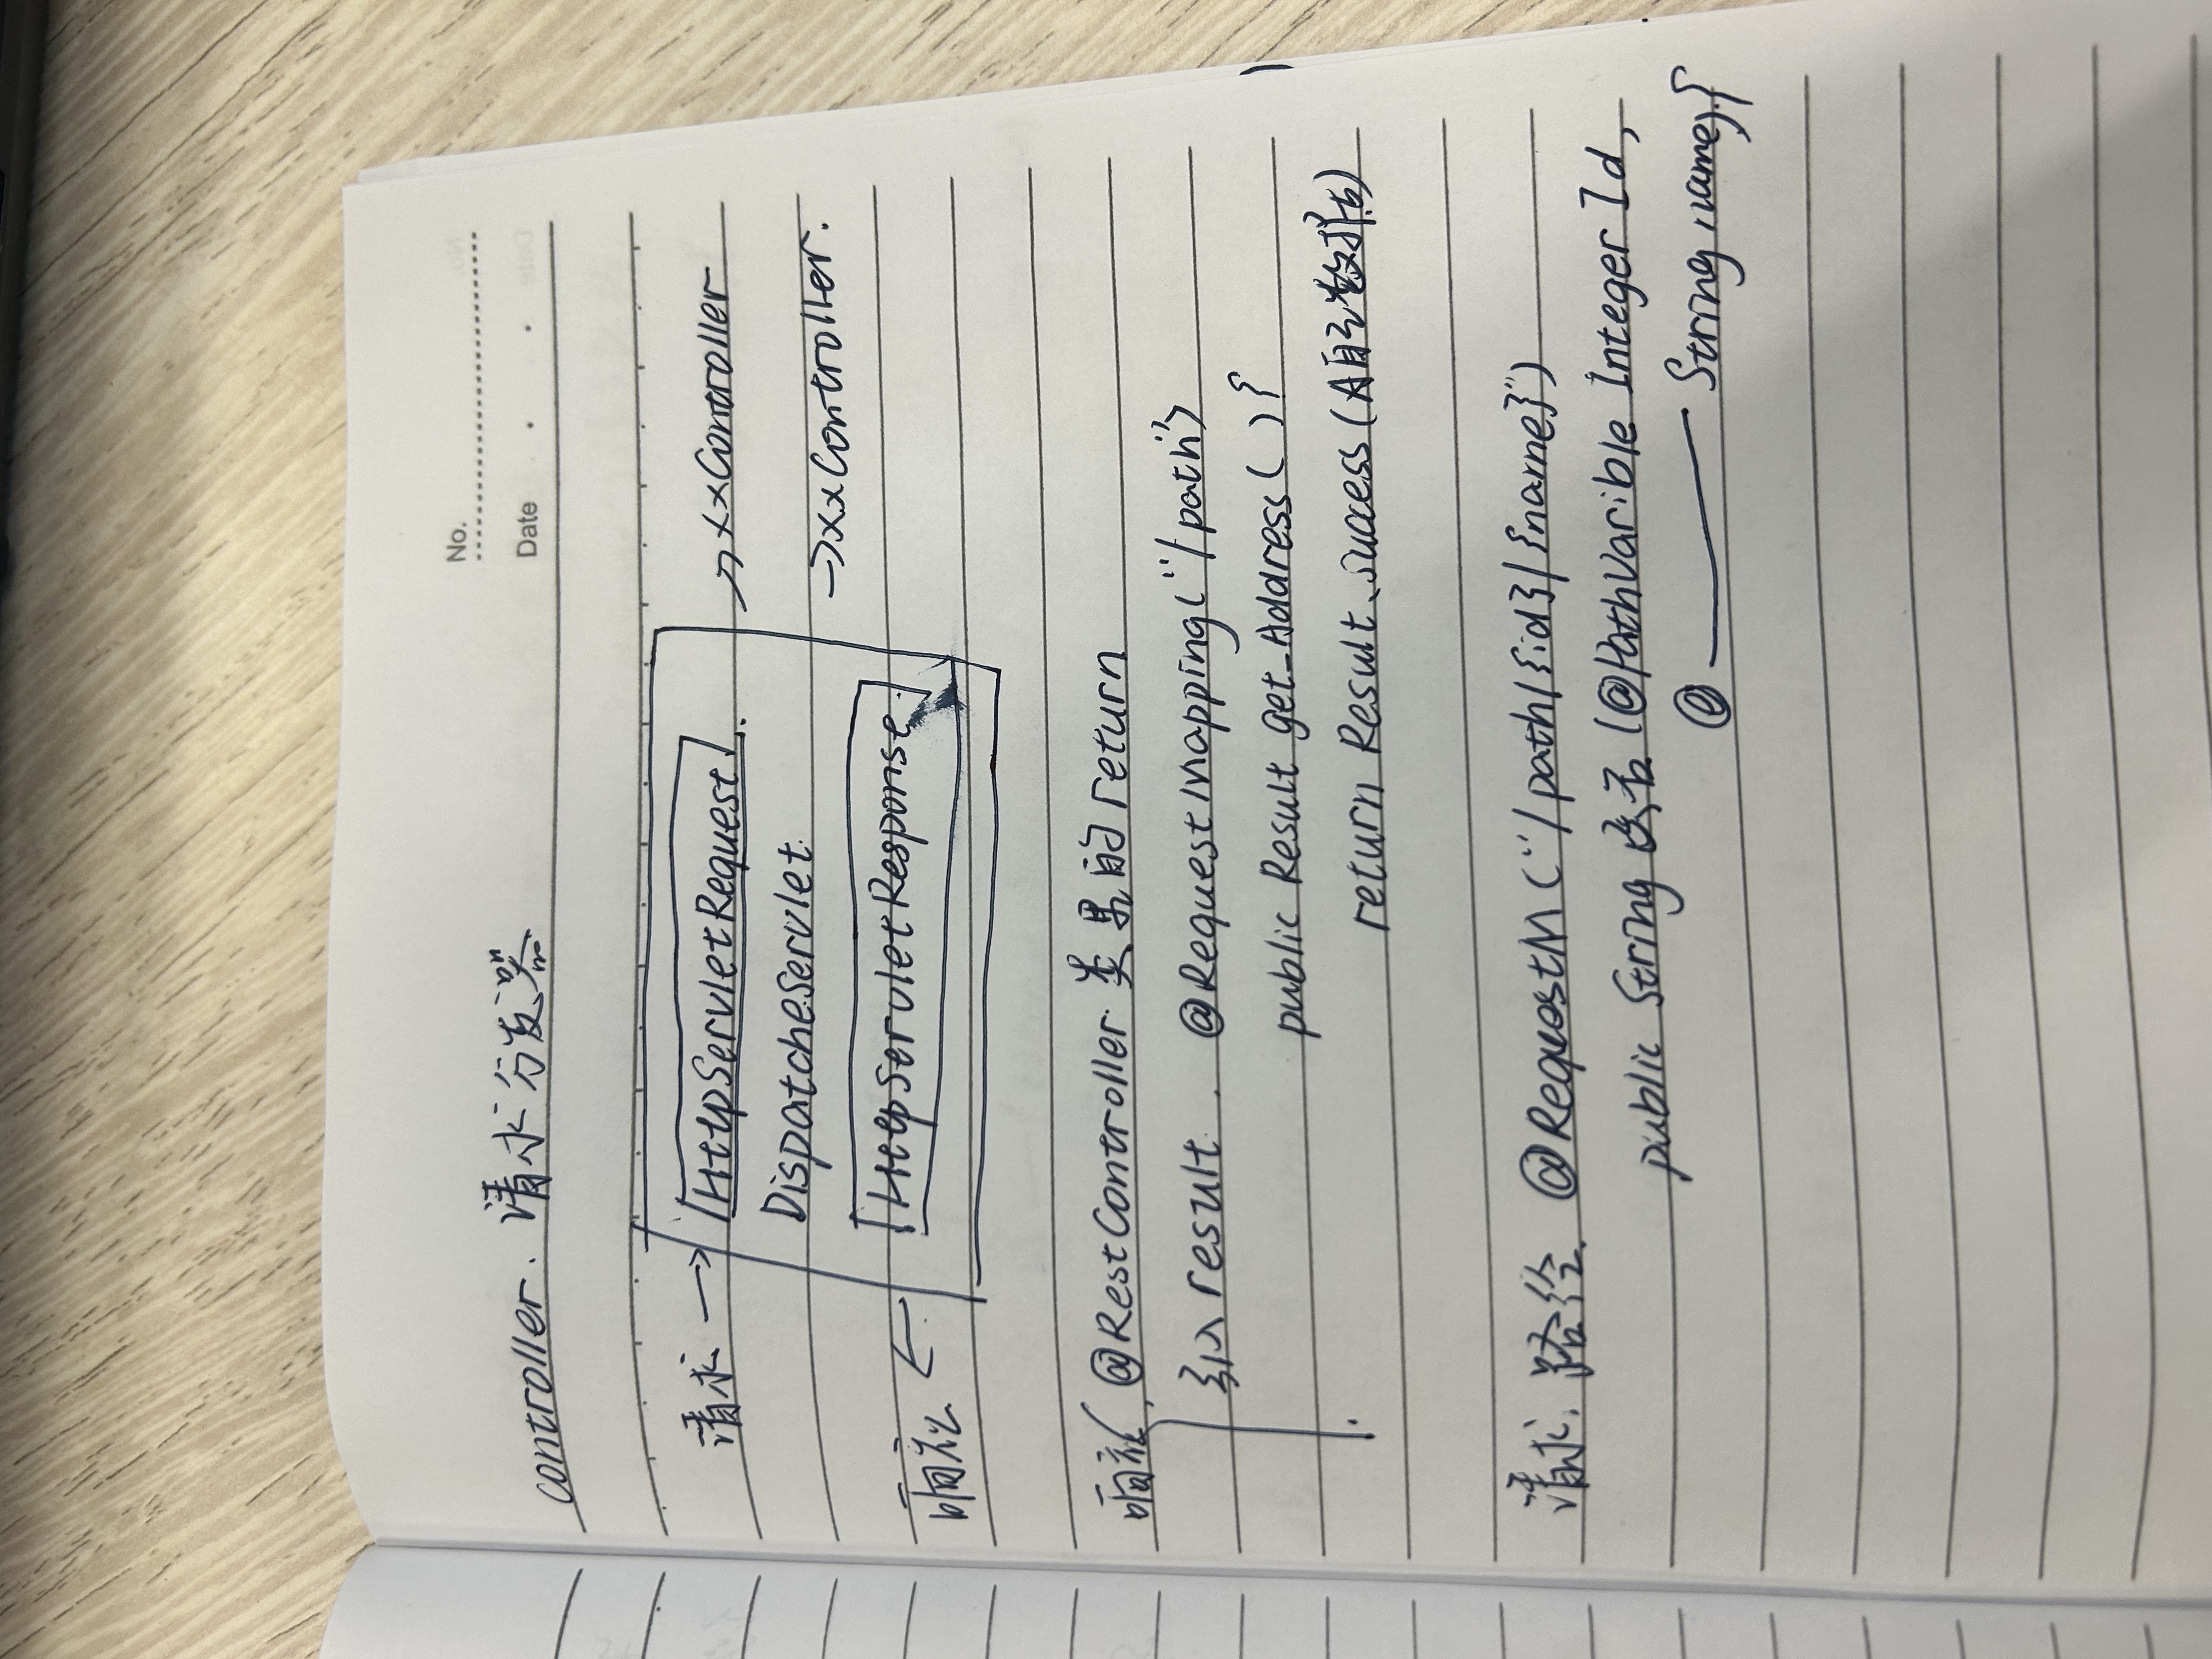 No.
Date
controller. 请求分发器
请求 → HttpServletRequest → xxController
DispatcheServlet
→ xxController.
响应 ← HttpServletResponse
响应. @RestController 类里的 return
引入 result. @RequestMapping("/path")
public Result get_Address( ){
return Result.success(A自己数据)
请求. 路径 @RequestM ("/path/{id}/{name}")
public String (@PathVarible Integer Id,
@ —— String name){